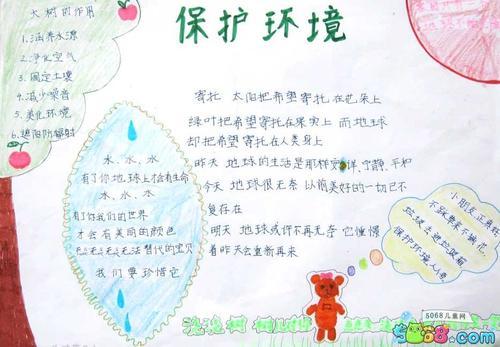 保护环境
大树的作用
1.涵养水源
2.净化空气
3.固定土壤
4.减少噪音
5.美化环境
6.遮阳防辐射
寄托 太阳把希望寄托在花朵上
绿叶把希望寄托在果实上 而地球
却把希望寄托在人类身上
昨天 地球的生活是那样安详、宁静、平和
今天 地球很无奈 以前美好的一切已不
复存在
明天 地球或许不再无奈 它憧憬
着昨天会重新再来
水、水、水
有了你地球上才会有生命
水、水、水
有了你我们的世界
才会有美丽的颜色
无法替代的宝贝
我们要珍惜它
小朋友
保护环境人人
浇浇树
5068儿童网
5068.com